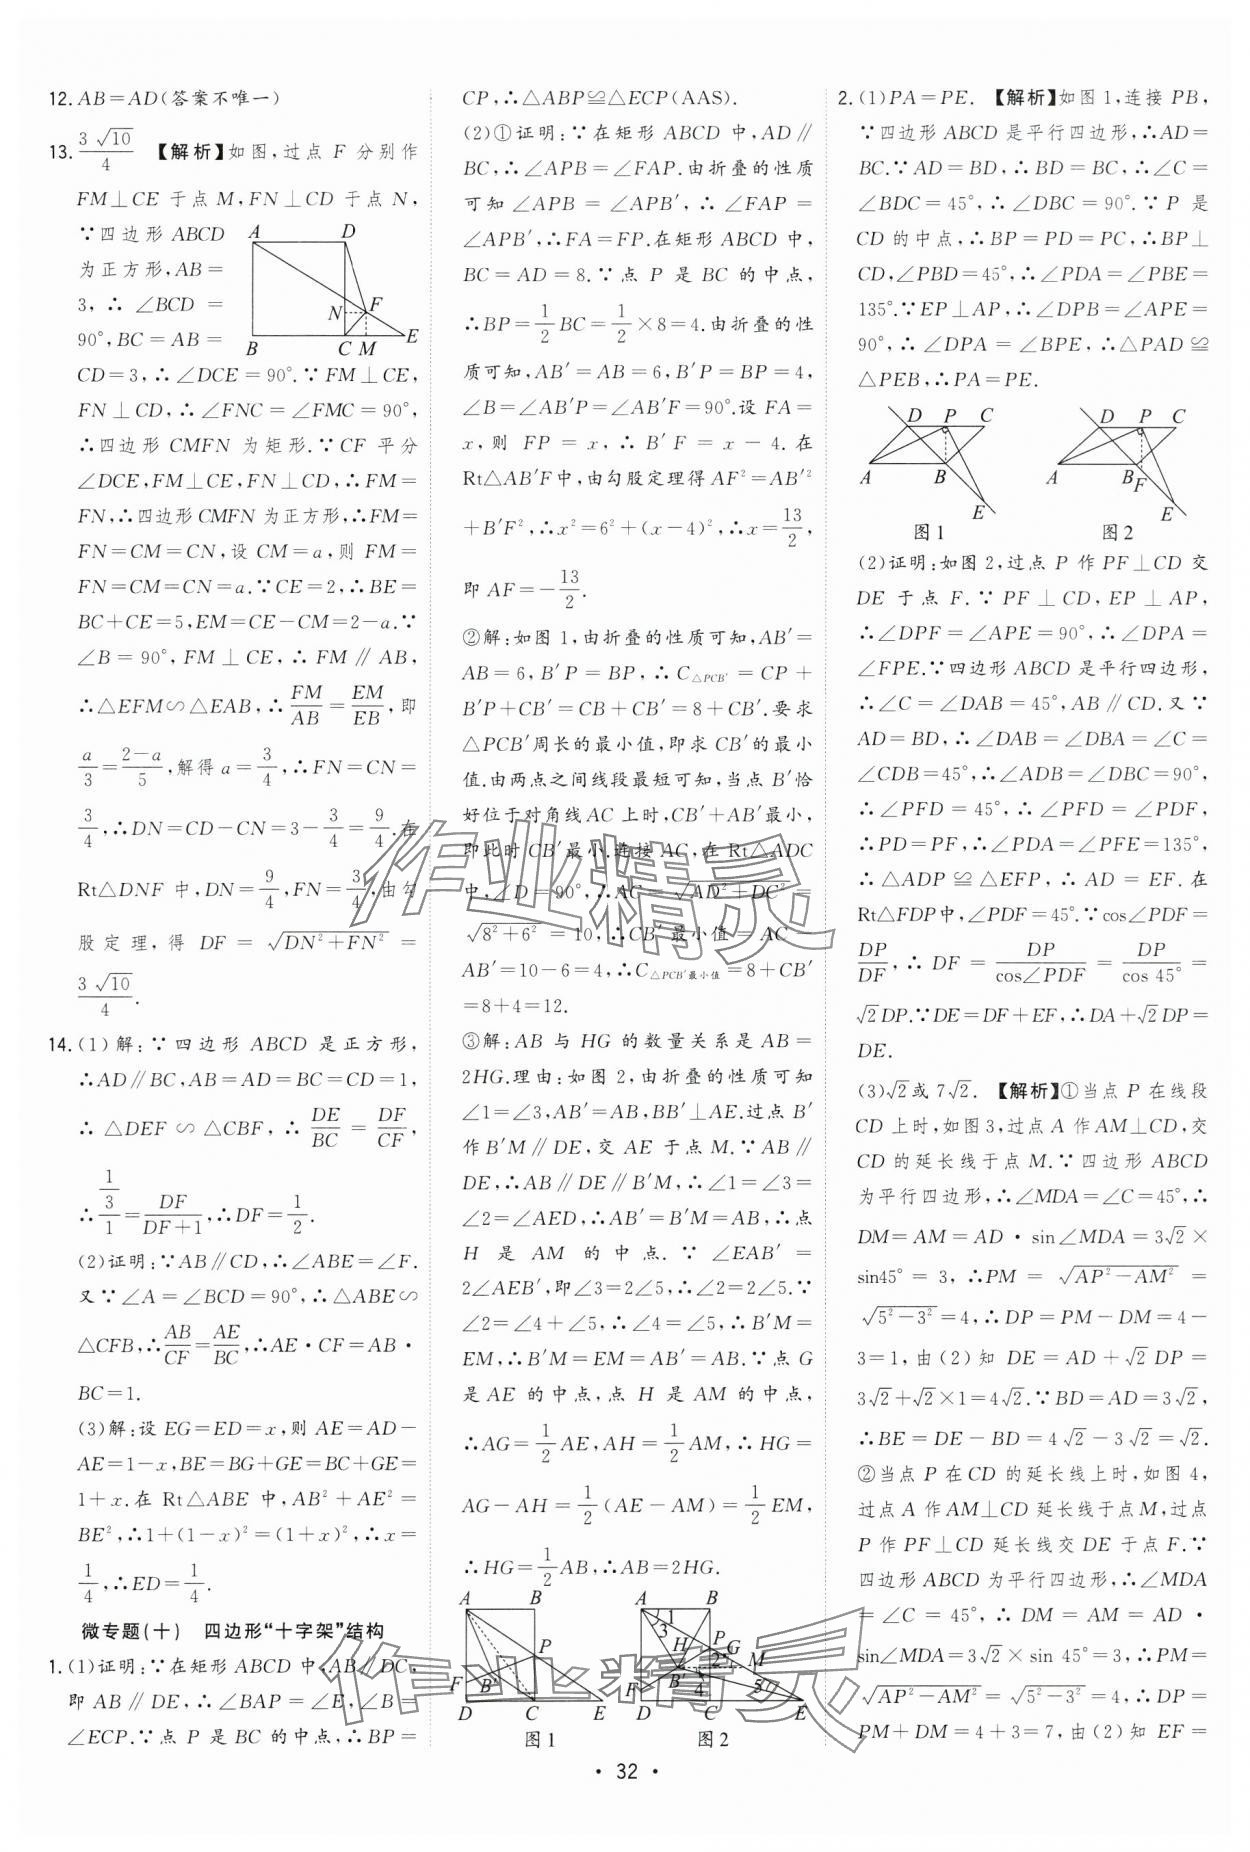 12. AB=AD(答案不唯一)
13. 3√10/4 【解析】如图,过点 F 分别作
FM⊥CE 于点 M,FN⊥CD 于点 N,
∵四边形 ABCD
为正方形,AB=
3,∴∠BCD=
90°,BC=AB=
A D F N B C M E
CD=3,∴∠DCE=90°.∵FM⊥CE,
FN⊥CD,∴∠FNC=∠FMC=90°,
∴四边形 CMFN 为矩形.∵CF 平分
∠DCE,FM⊥CE,FN⊥CD,∴FM=
FN,∴四边形CMFN为正方形,∴FM=
FN=CM=CN,设 CM=a,则 FM=
FN=CM=CN=a.∵CE=2,∴BE=
BC+CE=5,EM=CE-CM=2-a.∵
∠B=90°,FM⊥CE,∴FM∥AB,
∴△EFM∽△EAB,∴FM/AB=EM/EB,即
a/3=(2-a)/5,解得a=3/4,∴FN=CN=
3/4,∴DN=CD-CN=3-3/4=9/4.在
Rt△DNF 中,DN=9/4,FN=3/4,由勾
股定理,得 DF=√(DN²+FN²)=
3√10/4.
14. (1)解:∵四边形 ABCD 是正方形,
∴AD∥BC,AB=AD=BC=CD=1,
∴△DEF∽△CBF,∴DE/BC=DF/CF,
∴(1/3)/1=DF/(DF+1),∴DF=1/2.
(2)证明:∵AB∥CD,∴∠ABE=∠F.
又∵∠A=∠BCD=90°,∴△ABE∽
△CFB,∴AB/CF=AE/BC,∴AE·CF=AB·
BC=1.
(3)解:设 EG=ED=x,则 AE=AD-
AE=1-x,BE=BG+GE=BC+GE=
1+x.在 Rt△ABE 中,AB²+AE²=
BE²,∴1+(1-x)²=(1+x)²,∴x=
1/4,∴ED=1/4.
微专题(十) 四边形“十字架”结构
1. (1)证明:∵在矩形 ABCD 中,AB∥DC,
即 AB∥DE,∴∠BAP=∠E,∠B=
∠ECP.∵点 P 是 BC 的中点,∴BP=
CP,∴△ABP≌△ECP(AAS).
(2)①证明:∵在矩形 ABCD 中,AD∥
BC,∴∠APB=∠FAP.由折叠的性质
可知∠APB=∠APB′,∴∠FAP=
∠APB′,∴FA=FP.在矩形 ABCD 中,
BC=AD=8.∵点 P 是 BC 的中点,
∴BP=1/2BC=1/2×8=4.由折叠的性
质可知,AB′=AB=6,B′P=BP=4,
∠B=∠AB′P=∠AB′F=90°.设 FA=
x,则 FP=x,∴B′F=x-4.在
Rt△AB′F中,由勾股定理得 AF²=AB′²
+B′F²,∴x²=6²+(x-4)²,∴x=13/2,
即 AF=-13/2.
②解:如图 1,由折叠的性质可知,AB′=
AB=6,B′P=BP,∴C△PCB′=CP+
B′P+CB′=CB+CB′=8+CB′.要求
△PCB′周长的最小值,即求 CB′的最小
值.由两点之间线段最短可知,当点 B′恰
好位于对角线AC上时,CB′+AB′最小,
即此时 CB′最小.连接 AC,在 Rt△ADC
中,∠D=90°,∴AC=√(AD²+DC²)=
√(8²+6²)=10,∴CB′最小值=AC-
AB′=10-6=4,∴C△PCB′最小值=8+CB′
=8+4=12.
③解:AB 与 HG 的数量关系是 AB=
2HG.理由:如图 2,由折叠的性质可知
∠1=∠3,AB′=AB,BB′⊥AE.过点 B′
作 B′M∥DE,交 AE 于点 M.∵AB∥
DE,∴AB∥DE∥B′M,∴∠1=∠3=
∠2=∠AED,∴AB′=B′M=AB,∴点
H 是 AM 的中点.∵∠EAB′=
2∠AEB′,即∠3=2∠5,∴∠2=2∠5.∵
∠2=∠4+∠5,∴∠4=∠5,∴B′M=
EM,∴B′M=EM=AB′=AB.∵点 G
是 AE 的中点,点 H 是 AM 的中点,
∴AG=1/2AE,AH=1/2AM,∴HG=
AG-AH=1/2(AE-AM)=1/2EM,
∴HG=1/2AB,∴AB=2HG.
A B P F B′ D C E
图1
A B 1 3 H P G 2 M B′ F 4 5 D C E
图2
2. (1)PA=PE. 【解析】如图1,连接 PB,
∵四边形 ABCD 是平行四边形,∴AD=
BC.∵AD=BD,∴BD=BC,∴∠C=
∠BDC=45°,∴∠DBC=90°.∵P 是
CD 的中点,∴BP=PD=PC,∴BP⊥
CD,∠PBD=45°,∴∠PDA=∠PBE=
135°.∵EP⊥AP,∴∠DPB=∠APE=
90°,∴∠DPA=∠BPE,∴△PAD≌
△PEB,∴PA=PE.
D P C A B E
图1
D P C A B F E
图2
(2)证明:如图 2,过点 P 作 PF⊥CD 交
DE 于点 F.∵PF⊥CD,EP⊥AP,
∴∠DPF=∠APE=90°,∴∠DPA=
∠FPE.∵四边形ABCD是平行四边形,
∴∠C=∠DAB=45°,AB∥CD.又∵
AD=BD,∴∠DAB=∠DBA=∠C=
∠CDB=45°,∴∠ADB=∠DBC=90°,
∴∠PFD=45°,∴∠PFD=∠PDF,
∴PD=PF,∴∠PDA=∠PFE=135°,
∴△ADP≌△EFP,∴AD=EF.在
Rt△FDP中,∠PDF=45°.∵cos∠PDF=
DP/DF,∴DF=DP/cos∠PDF=DP/cos 45°=
√2DP.∵DE=DF+EF,∴DA+√2DP=
DE.
(3)√2或7√2. 【解析】①当点 P 在线段
CD 上时,如图3,过点 A 作AM⊥CD,交
CD 的延长线于点 M.∵四边形 ABCD
为平行四边形,∴∠MDA=∠C=45°,∴
DM=AM=AD·sin∠MDA=3√2×
sin45°=3,∴PM=√(AP²-AM²)=
√(5²-3²)=4,∴DP=PM-DM=4-
3=1,由(2)知 DE=AD+√2DP=
3√2+√2×1=4√2.∵BD=AD=3√2,
∴BE=DE-BD=4√2-3√2=√2.
②当点 P 在CD 的延长线上时,如图4,
过点 A 作AM⊥CD 延长线于点M,过点
P 作 PF⊥CD 延长线交 DE 于点 F.∵
四边形 ABCD 为平行四边形,∴∠MDA
=∠C=45°,∴DM=AM=AD·
sin∠MDA=3√2×sin 45°=3,∴PM=
√(AP²-AM²)=√(5²-3²)=4,∴DP=
PM+DM=4+3=7,由(2)知 EF=
• 32 •
作业精灵
作业精灵